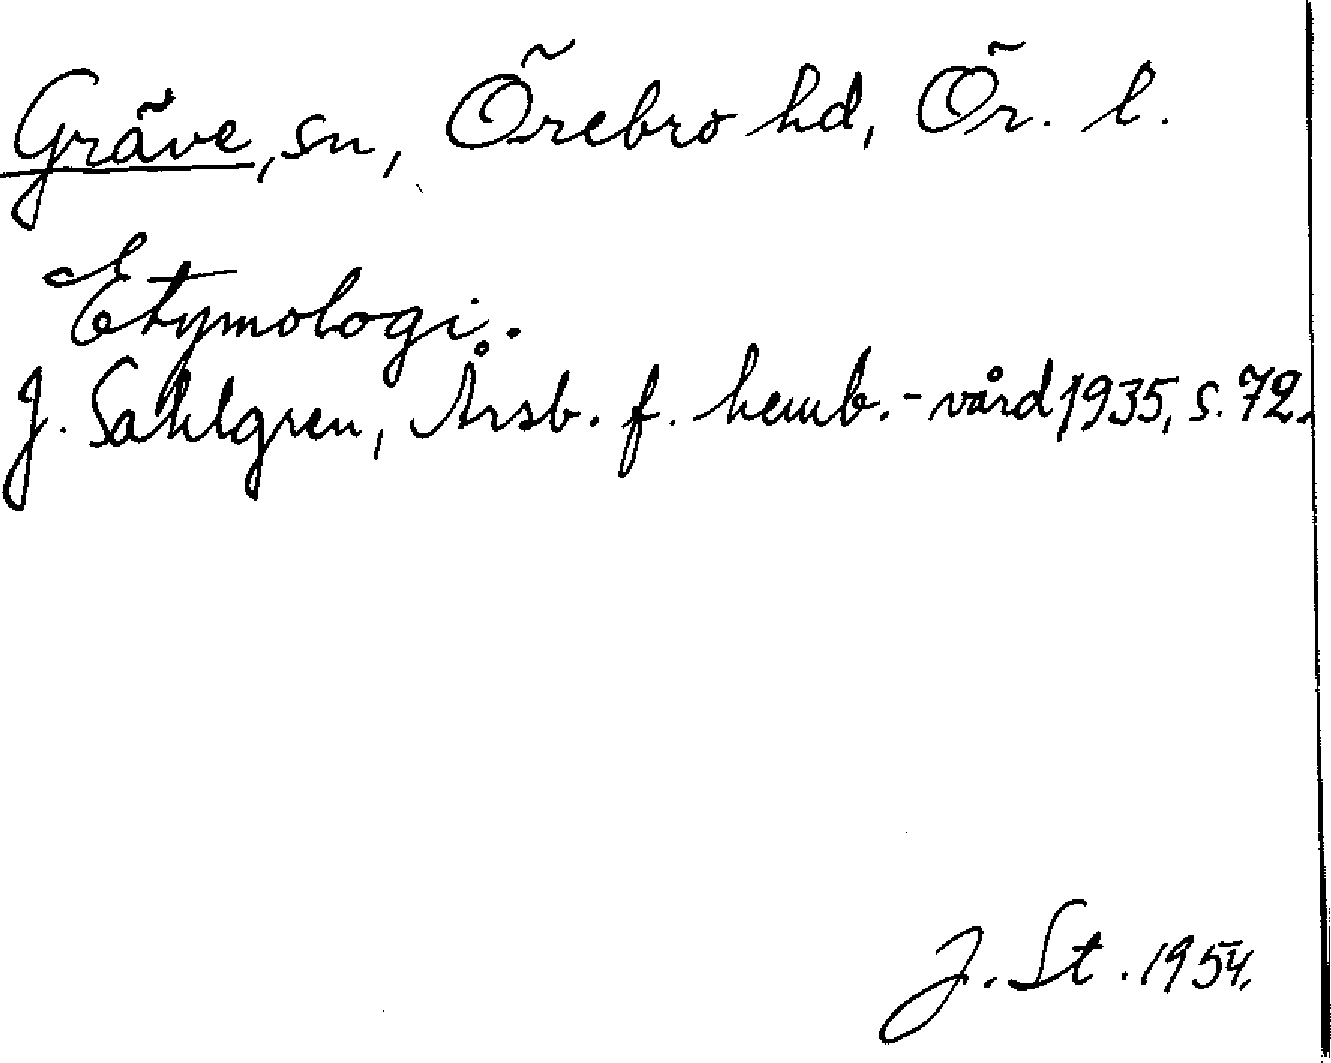 Gräve, sn, Örebro hd, Ör. l.
Etymologi.
J. Sahlgren, Årsb. f. hemb.-vård 1935, s. 72.
J. St. 1954.